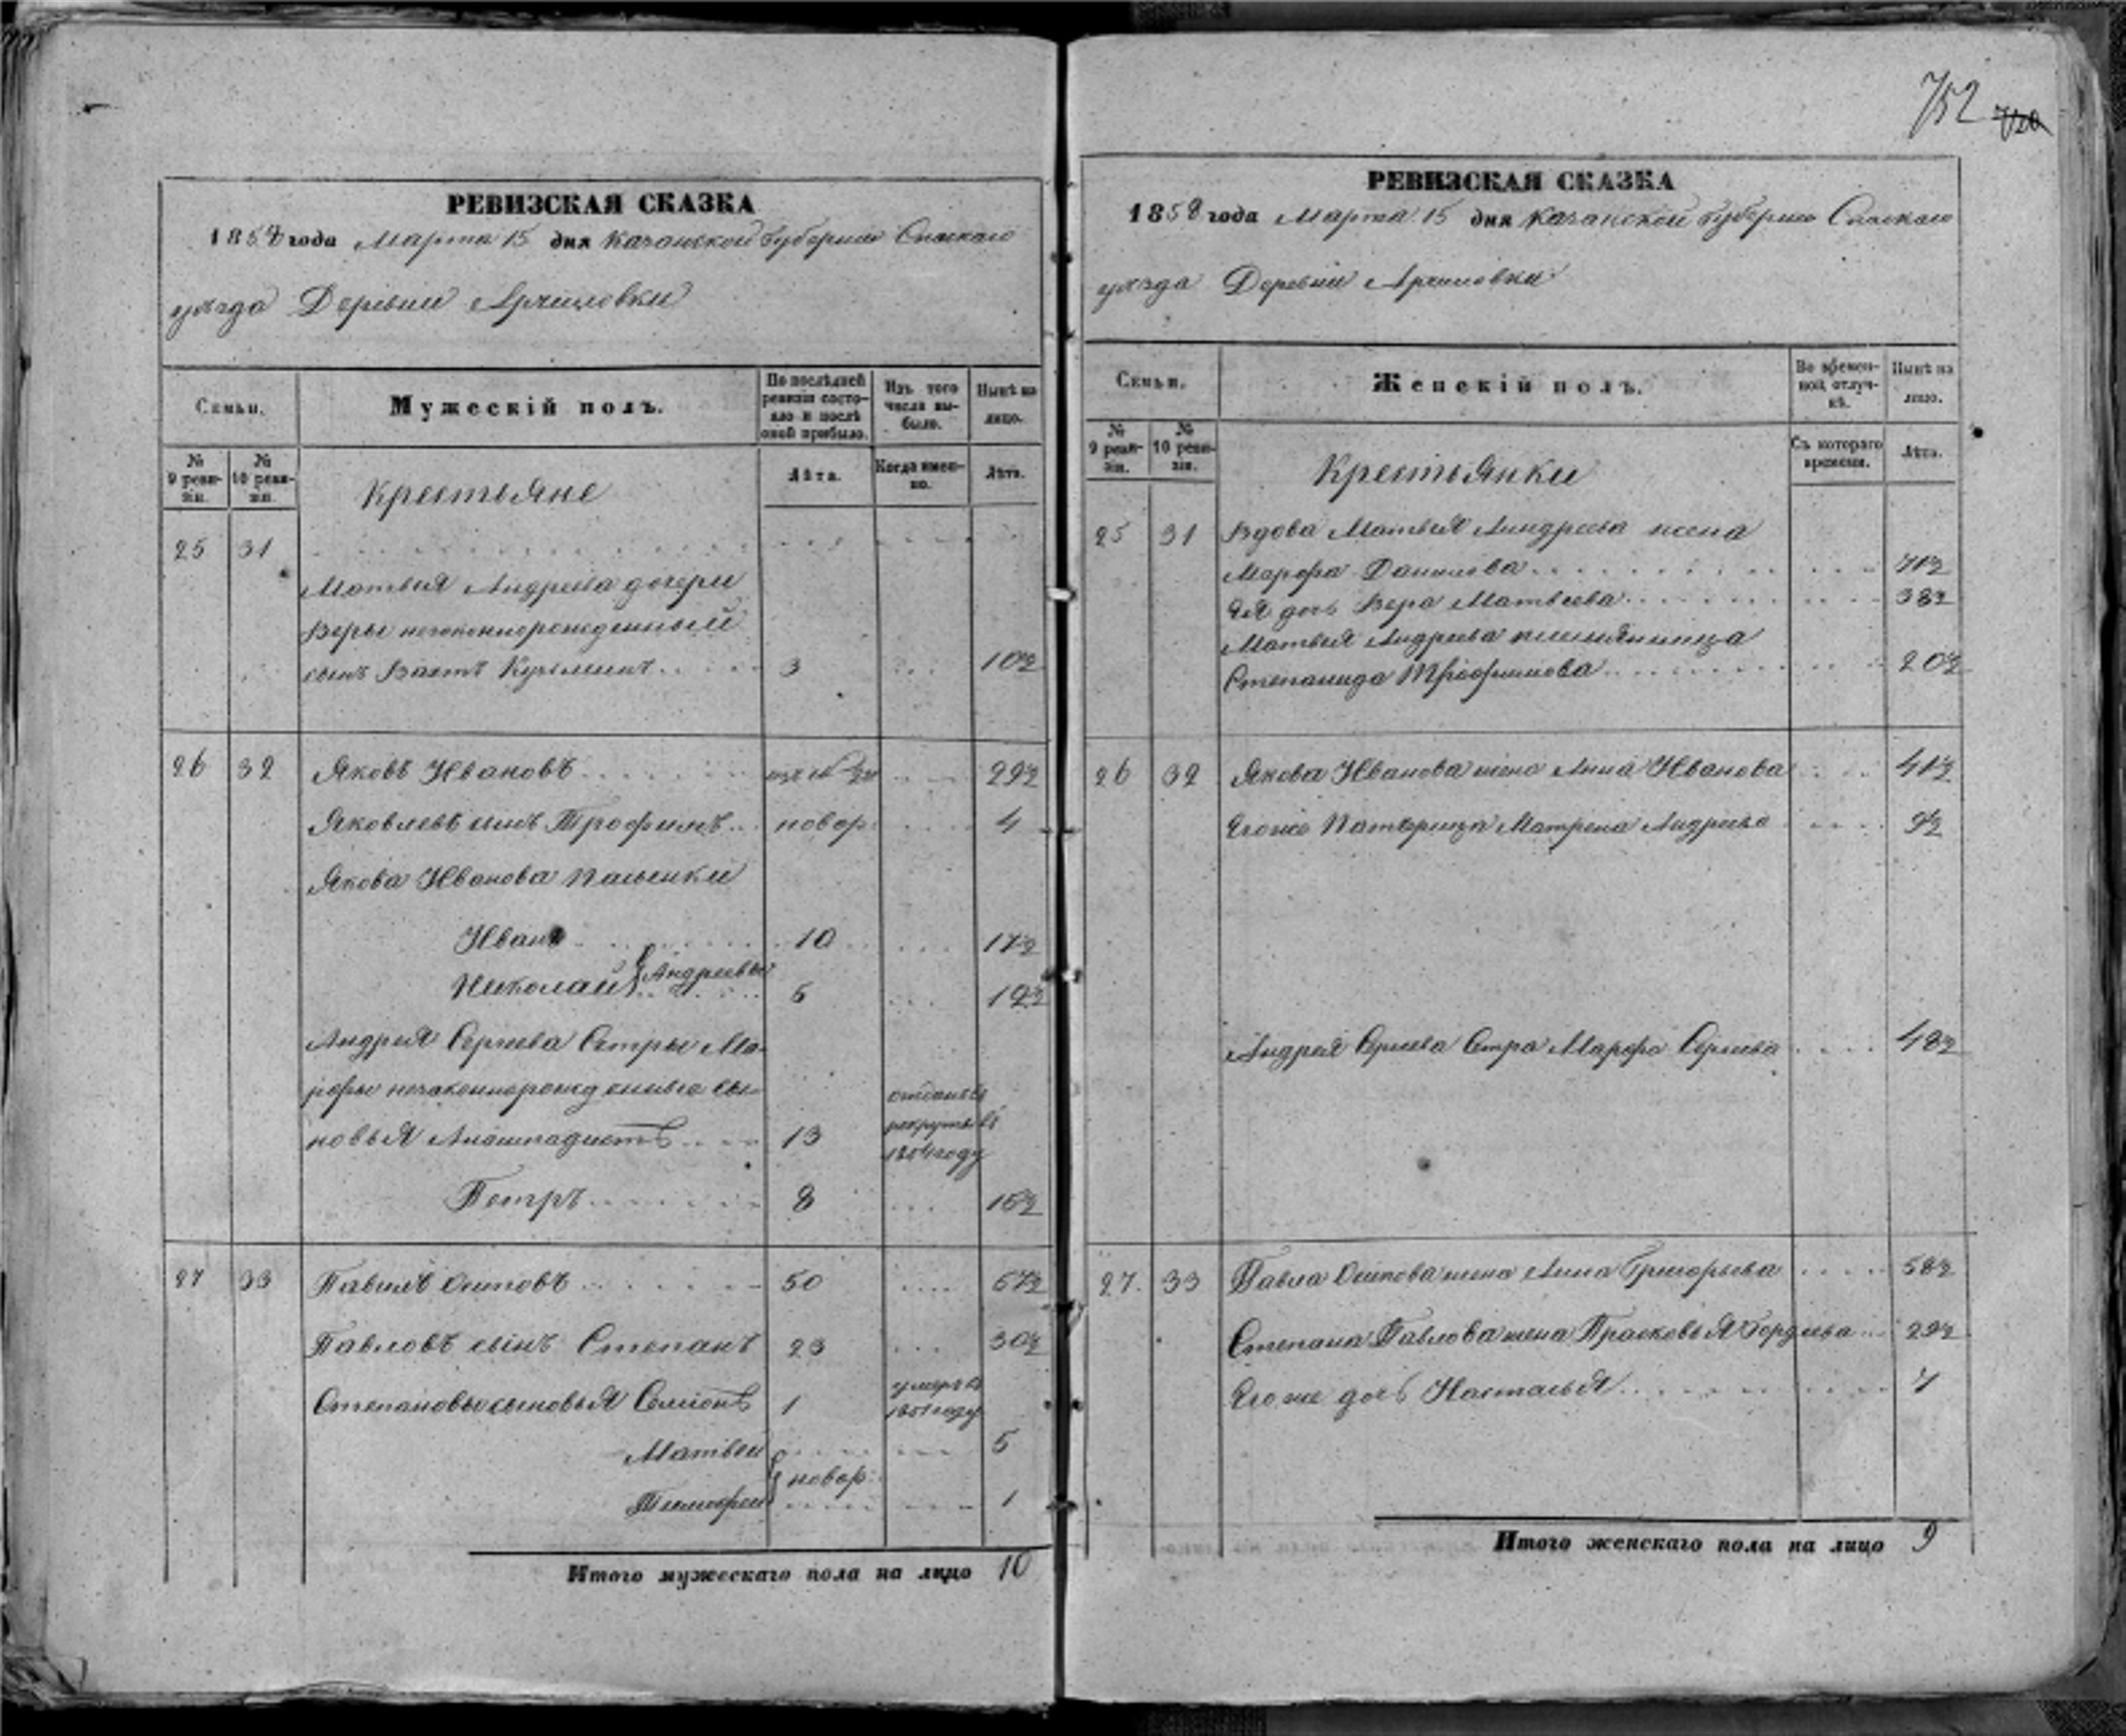 752 720
РЕВИЗСКАЯ СКАЗКА
1858 года Марта 15 дня Казанской Губернии Спаскаго
уѣзда Деревни
Семьи.
Мужескій полъ.
По послѣдней ревизіи состояло и послѣ оной прибыло.
Изъ того числа выбыло.
Нынѣ на лицо.
№ 9 ревизіи.
№ 10 ревизіи.
Крестьяне
Лѣта.
Когда именно.
Лѣта.
25 31
Матвѣя Андреева дочери
Веры незаконнорожденный
сынъ Кузьминъ 3 10½
26 32 Яковъ Ивановъ 22½
Яковлевъ сынъ Трофимъ новор: 4
Якова Иванова
Иванъ 10 17½
Николай } Андреевы 5 12½
Андрея Сергеева Сестры Ма-
рфы незаконнорожденные сы-
новья 13 отданъ въ рекруты въ 1854 году
Петръ 8 15½
27 33 Павелъ Осиповъ 50 57½
Павловъ сынъ Степанъ 23 30½
Степановы сыновья Семіонъ 1 умеръ въ 1851 году
Матвей 5
Тимофей } новор: 1
Итого мужескаго пола на лицо 10
РЕВИЗСКАЯ СКАЗКА
1858 года Марта 15 дня Казанской Губернии Спаскаго
уѣзда Деревни
Семьи.
Женскій полъ.
Во временной отлучкѣ.
Нынѣ на лицо.
№ 9 ревизіи.
№ 10 ревизіи.
Крестьянки
Съ котораго времени.
Лѣта.
25 31 Вдова Матвея Андреева жена
Марфа Данилова 71½
Ея дочь Вера Матвеева 38½
Матвея Андреева племянница
Степанида Трофимова 20½
26 32 Якова Иванова жена Анна Иванова 41½
Его же Матрена Андреева 9½
Андрея Сергеева Сестра Марфа Сергеева 48½
27. 33 Павла Осипова жена Анна Григорьева 58½
Степана Павлова жена Прасковья Гордеева 29½
Его же дочь Наталья 7
Итого женскаго пола на лицо 9